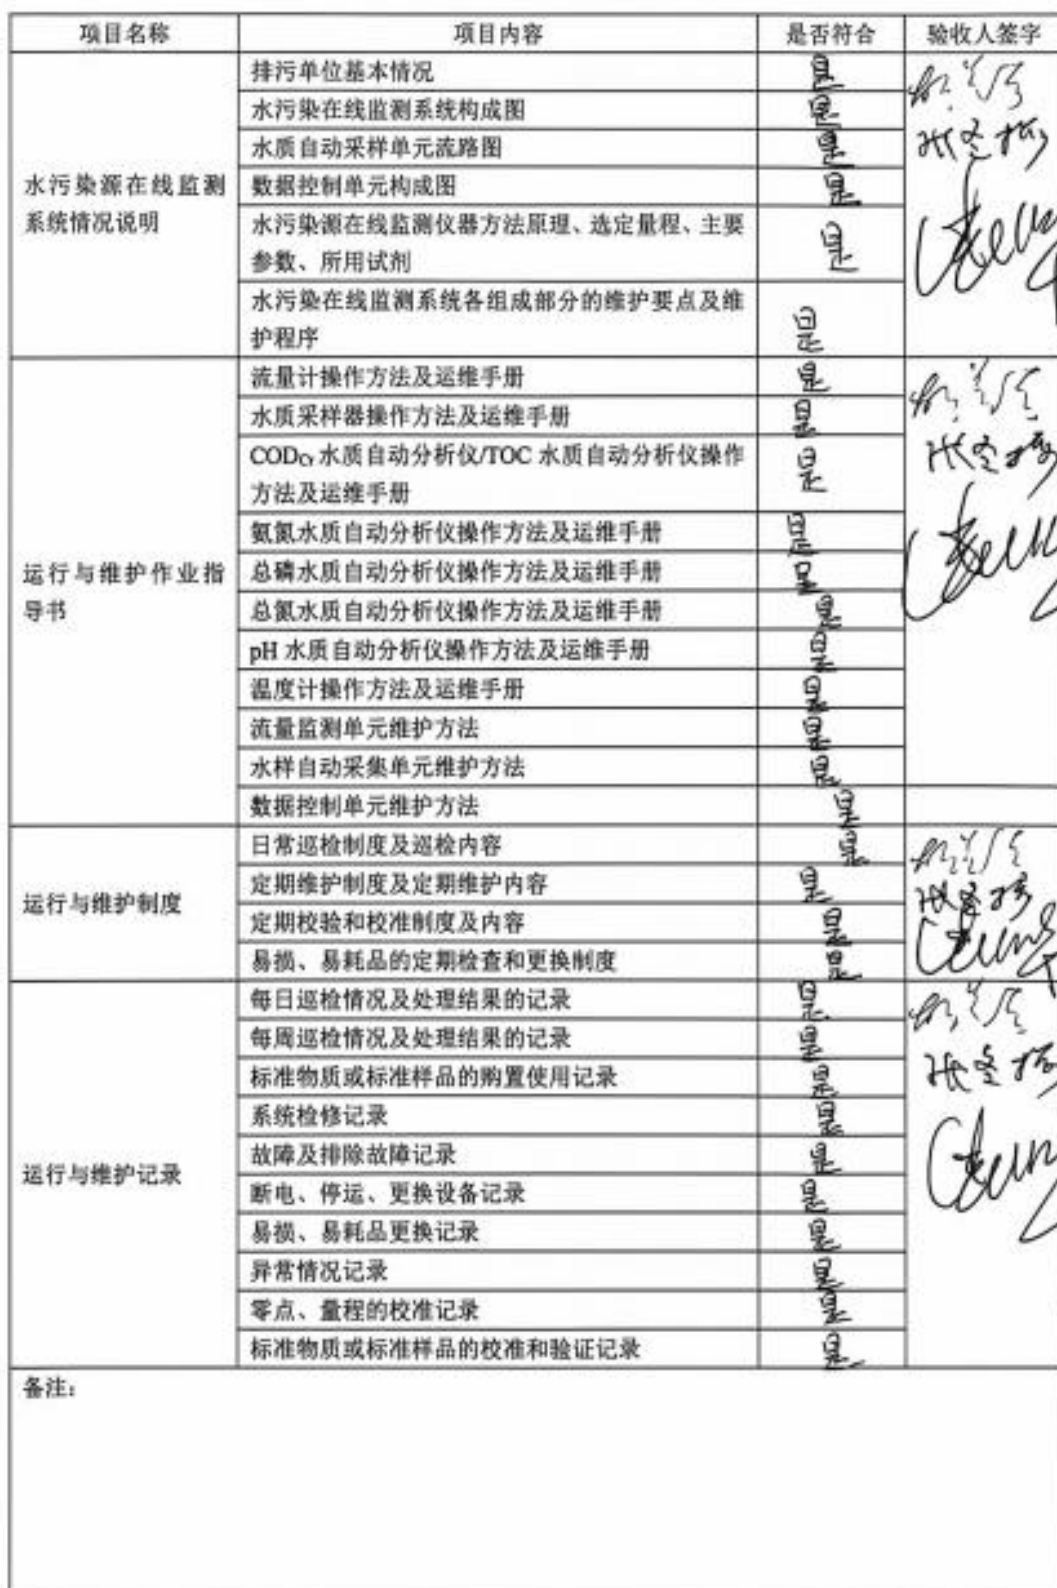 项目名称 项目内容 是否符合 验收人签字
水污染源在线监测
系统情况说明
排污单位基本情况 是
水污染在线监测系统构成图 是
水质自动采样单元流路图 是
数据控制单元构成图 是
水污染源在线监测仪器方法原理、选定量程、主要
参数、所用试剂 是
水污染在线监测系统各组成部分的维护要点及维
护程序 是
运行与维护作业指
导书
流量计操作方法及运维手册 是
水质采样器操作方法及运维手册 是
CODCr 水质自动分析仪/TOC 水质自动分析仪操作
方法及运维手册 是
氨氮水质自动分析仪操作方法及运维手册 是
总磷水质自动分析仪操作方法及运维手册 是
总氮水质自动分析仪操作方法及运维手册 是
pH 水质自动分析仪操作方法及运维手册 是
温度计操作方法及运维手册 是
流量监测单元维护方法 是
水样自动采集单元维护方法 是
数据控制单元维护方法 是
运行与维护制度
日常巡检制度及巡检内容 是
定期维护制度及定期维护内容 是
定期校验和校准制度及内容 是
易损、易耗品的定期检查和更换制度 是
运行与维护记录
每日巡检情况及处理结果的记录 是
每周巡检情况及处理结果的记录 是
标准物质或标准样品的购置使用记录 是
系统检修记录 是
故障及排除故障记录 是
断电、停运、更换设备记录 是
易损、易耗品更换记录 是
异常情况记录 是
零点、量程的校准记录 是
标准物质或标准样品的校准和验证记录 是
备注：